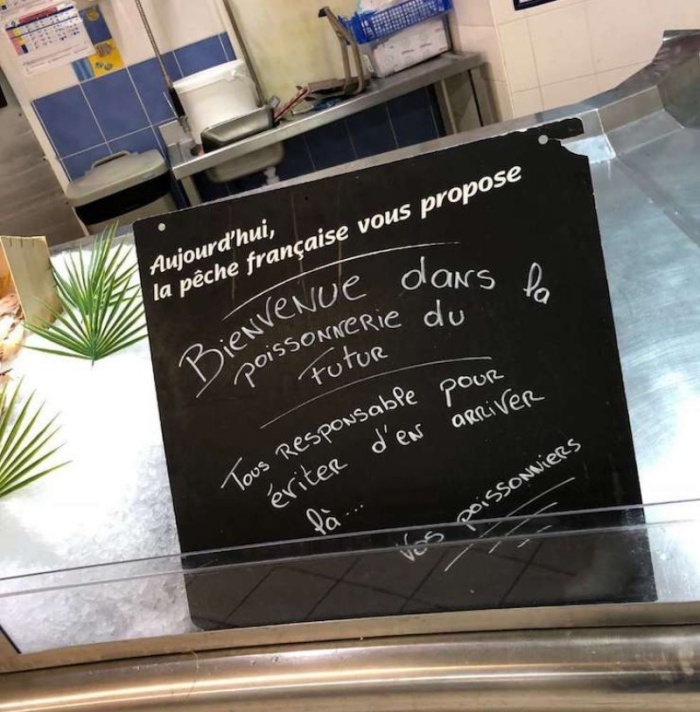 Aujourd'hui,
la pêche française vous propose
BiENVENUE dans la
poissonnerie du
futur
Tous RESPONSAble pour
éviter d'en arriver
là...
Vos poissonniers